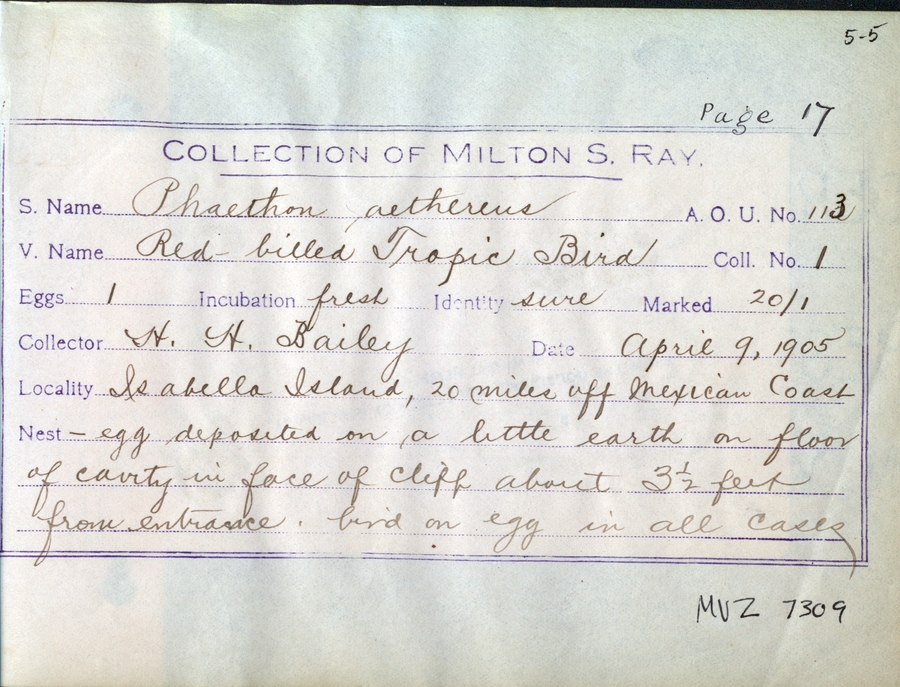 5-5
Page 17
COLLECTION OF MILTON S. RAY.
S. Name Phaethon aethereus A. O. U. No. 113
V. Name Red-billed Tropic Bird Coll. No. 1
Eggs 1 Incubation fresh Identity sure Marked 20/1
Collector H. H. Bailey Date April 9, 1905
Locality Isabella Island, 20 miles off Mexican Coast
Nest - egg deposited on a little earth on floor
of cavity in face of cliff about 3½ feet
from entrance. bird on egg in all cases
MVZ 7309